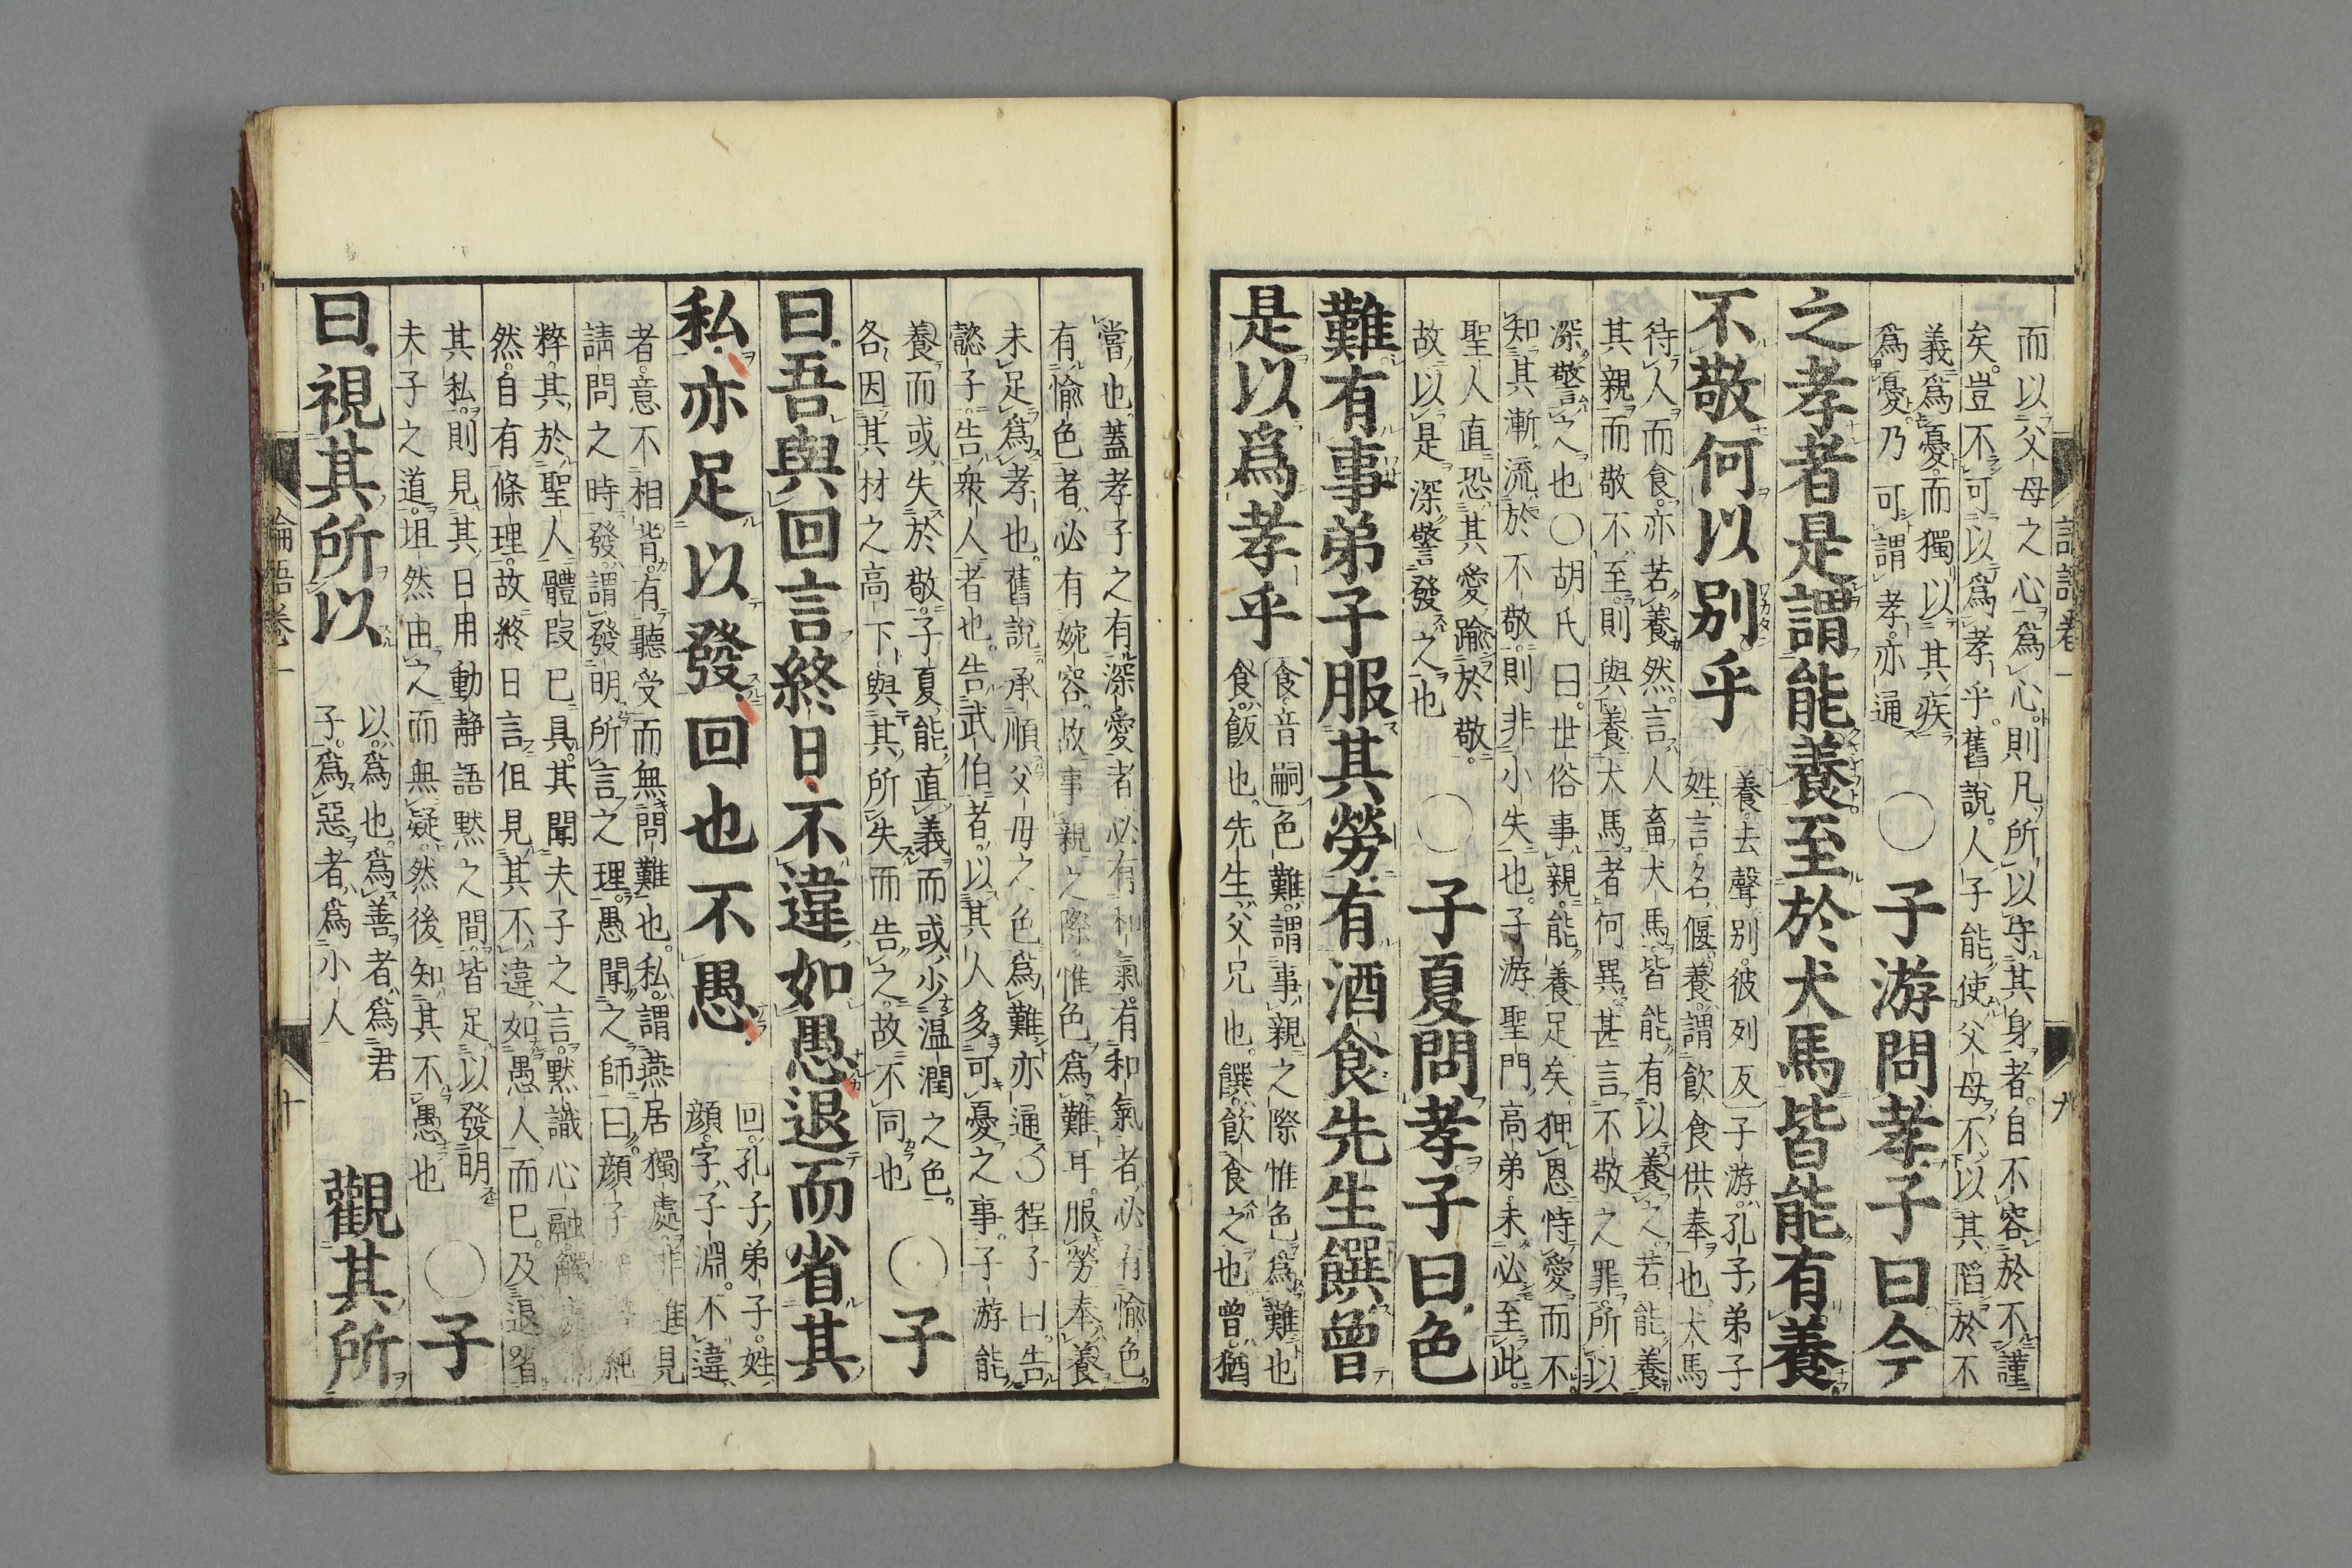 論語卷一 九
而以父母之心爲心。則凡所以守其身者。自不容於不謹
矣。豈不可以爲孝乎。舊說。人子能使父母不以其陷於不
義爲憂。而獨以其疾
爲憂。乃可謂孝。亦通
○子游問孝子曰今
之孝者是謂能養至於犬馬皆能有養
不敬何以別乎
養去聲。別。彼列反 子游。孔子弟子
姓言名偃。養。謂飲食供奉也。犬馬
待人而食。亦若養然。言人畜犬馬皆能有以養之。若能養
其親而敬不至。則與養犬馬者何異。甚言不敬之罪。所以
深警之也○胡氏曰。世俗事親。能養足矣。狎恩恃愛。而不
知其漸流於不敬。則非小失也。子游聖門高弟。未必至此。
聖人直恐其愛踰於敬。
故以是深警發之也
○子夏問孝子曰色
難有事弟子服其勞有酒食先生饌曾
是以爲孝乎
食音嗣 色難。謂事親之際惟色爲難也
食。飯也。先生。父兄也。饌。飲食之也。曾猶
嘗也。蓋孝子之有深愛者必有和氣。有和氣者必有愉色。
有愉色者必有婉容。故事親之際惟色爲難耳。服勞奉養
未足爲孝也。舊說。承順父母之色爲難。亦通○程子曰。告
懿子。告衆人者也。告武伯者。以其人多可憂之事。子游能
養而或失於敬。子夏能直義而或少温潤之色。
各因其材之高下與其所失而告之。故不同也
○子
曰吾與回言終日不違如愚退而省其
私亦足以發回也不愚
回。孔子弟子。姓
顔。字子淵。不違
者。意不相背。有聽受而無問難也。私。謂燕居獨處。非進見
請問之時。發。謂發明所言之理。愚聞之師。曰。顔子深潛純
粹。其於聖人體段已具。其聞夫子之言。默識心融。觸處洞
然。自有條理。故終日言。但見其不違如愚人而已。及退省
其私。則見其日用動靜語默之間。皆足以發明
夫子之道。坦然由之而無疑。然後知其不愚也
○子
曰視其所以
以。爲也。爲善者。爲君
子。爲惡者。爲小人
觀其所
論語卷一 十